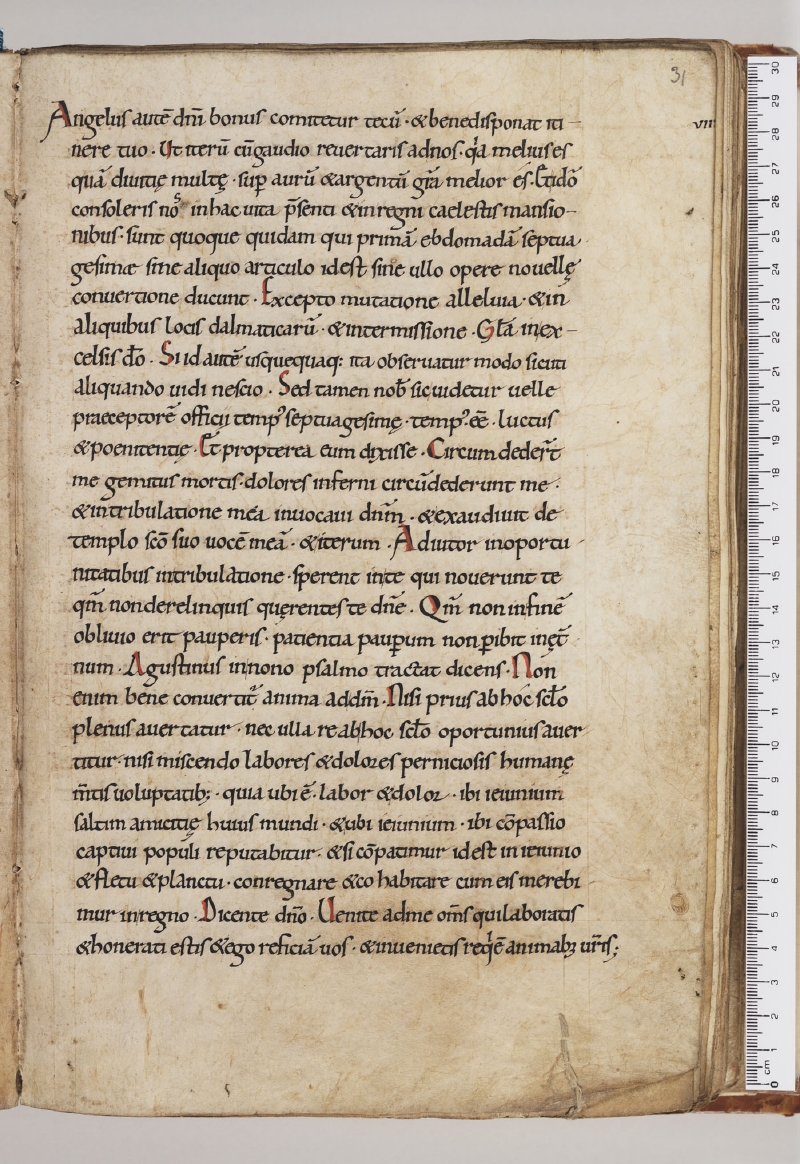 31
Angelus autē dn̄i bonus comitetur tecū · & benedisponat iti –
vii
nere tuo · Ut iterū cū gaudio reuertaris ad nos · q̇a melius es
quā diuitię multę · sup̄ aurū & argentū gr̄a melior es · Et idō
consoleris nos in hac uita p̄senti & in regni caelestis mansio –
nibus · sunt quoque quidam qui primā ebdomadā septua
gesimæ sine aliquo articulo id est sine ullo opere nouellę
conuertione ducunt · Excepto mutatione alleluia · & in
aliquibus locis dalmaticarū · & intermissione · Gl̄a in ex –
celsis dō · Si id autē usquequaq: ita obseruatur modo sicuti
aliquando uidi nescio · Sed tamen nob̄ sic uidetur uelle
praeceptorē officii temp᾽ septuagesimę · temp᾽ · eē · luctus
& poenitentię · Et propterea eum dixisse · Circumdeder̄t
me gemitus mortis · dolores inferni circūdederunt me ·
& in tribulatione mea inuocaui dnm̄ · & exaudiuit de
templo scō suo uocē meā · & iterum · Adiutor in oportu
nitatibus in tribulatione · sperent in te qui nouerunt te
qm̄ non derelinquis quęrentes te dn̄e · Qm̄ non in finē
obliuio erit pauperis · patientia paup̱um non p̱ibit in ęt̄
num · Agustinus in nono psalmo tractat dicens · Non
enim bene conuertit̄ anima ad dm̄ · Nisi prius ab hoc sclō
plenus auertatur · nec ulla re ab hoc sclō oportunius auer
titur · nisi miscendo labores & dolores perniciosis humanę
m̄tis uoluptatib; · quia ubi ē · labor & dolor · ibi ieiunium
saltim amicitię huius mundi · & ubi ieiunium · ibi cōpassio
captiui populi reputabitur · & si cōpatimur id est in ieiunio
& fletu & planctu · conregnare & co habitare cum eis merebi
mur in regno · Dicente dn̄o · Uenite ad me om̄s qui laboratis
& honerati estis & ego reficiā uos · & inuenietis req̇ē animab; ur̄is ;